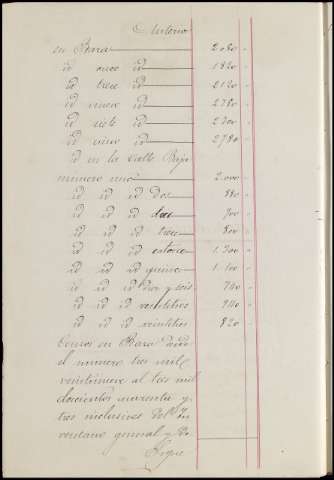 Anterior
en Baza 2080 "
id once id 1820 "
id trece id 2120 "
id nueve id 2780 "
id siete id 2300 "
id uno id 2780 "
id en la Calle Baja
número uno 2.000 "
id id id dos 880 "
id id id doce 900 "
id id id trece 800 "
id id id catorce 1.300 "
id id id quince 1.100 "
id id id diez y seis 700 "
id id id veintitres 900 "
id id id veintitres 820 "
Censos en Baza desde
el número tres mil
veintinueve al tres mil
doscientos noventa y
tres inclusives del In
ventario general y de
Sigue